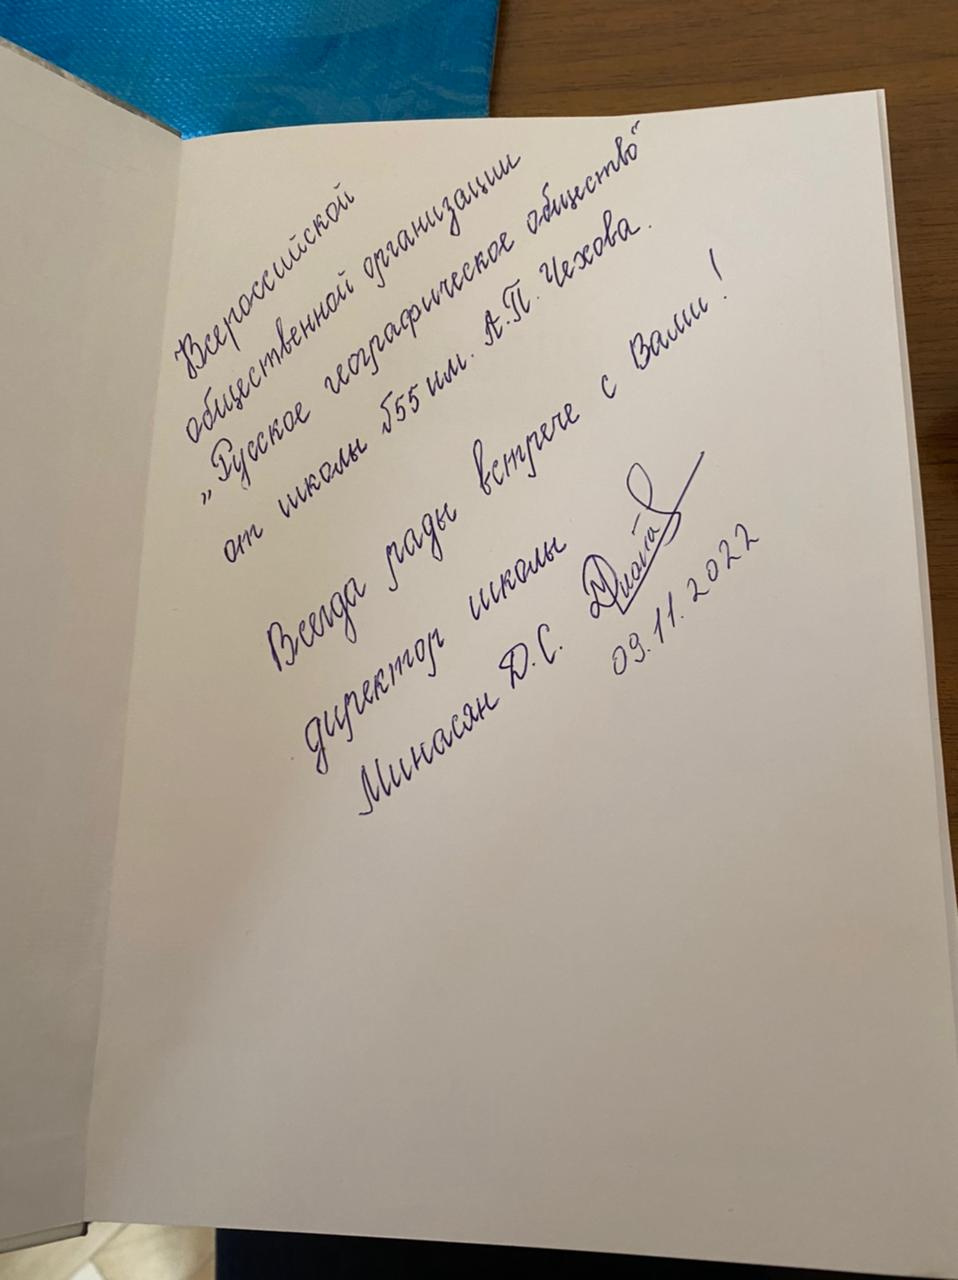 Всероссийской
общественной организации
„Русское географическое общество“
от школы №55 им. А.П. Чехова.
Всегда рады встрече с Вами!
директор школы
Минасян Д.С.
09.11.2022